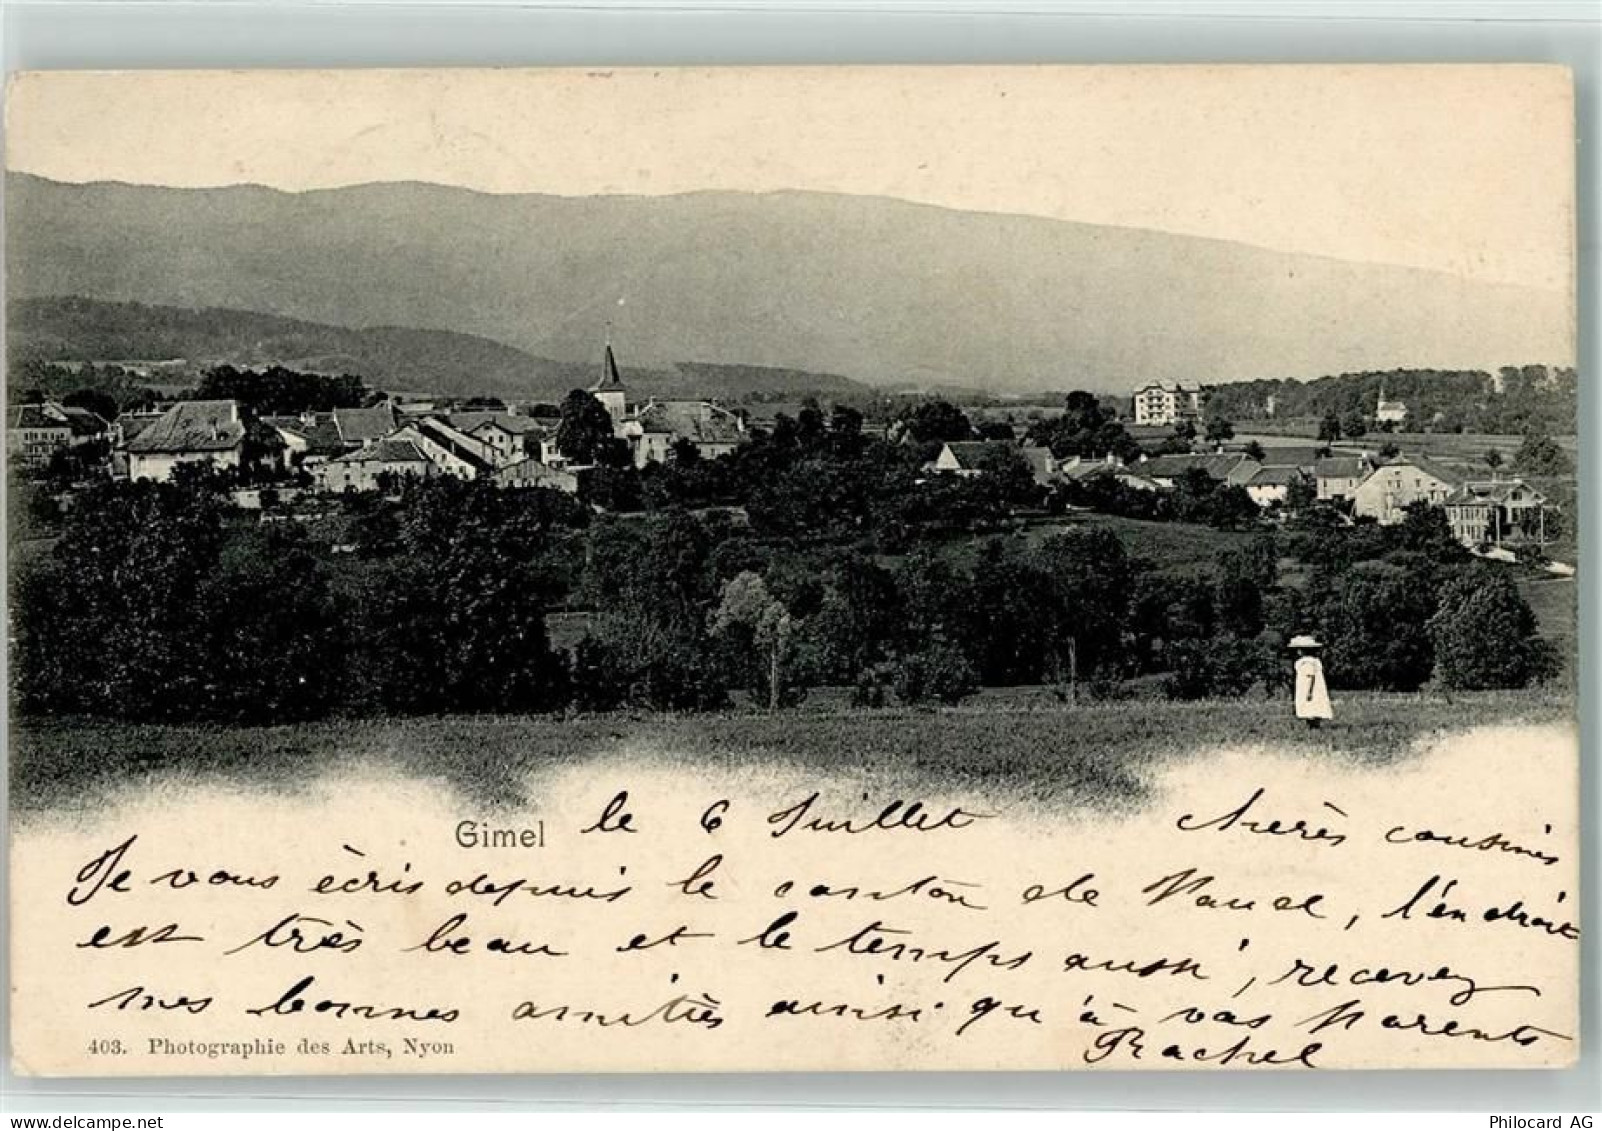 Gimel le 6 Juillet Chères cousines
Je vous écris depuis le canton de Vaud, l'endroit
est très beau et le temps aussi, recevez
mes bonnes amitiès ainsi qu'à vos parents
Rachel
403. Photographie des Arts, Nyon
Philocard AG